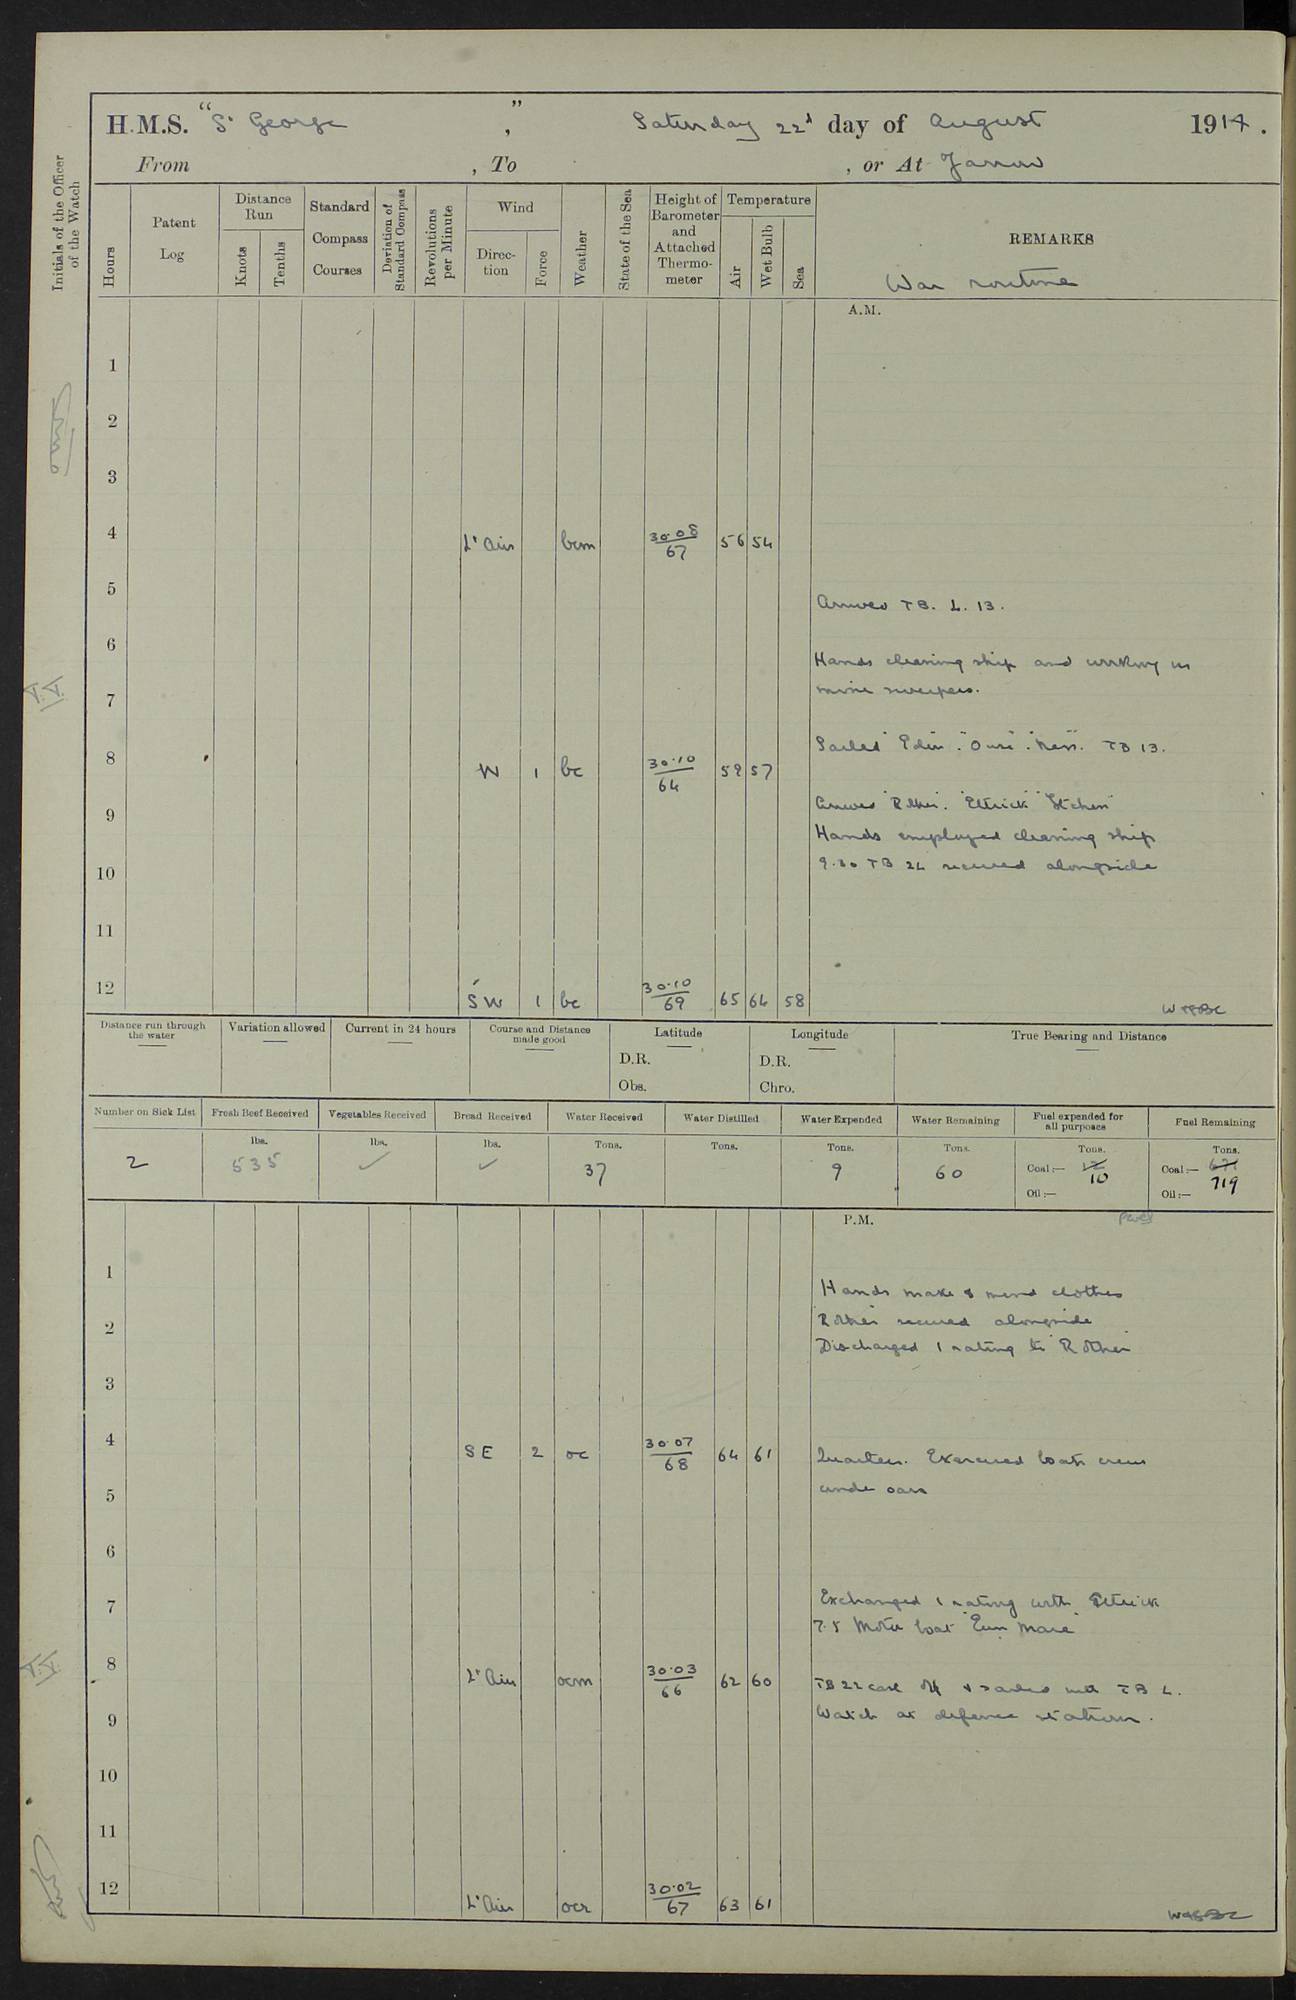 H.M.S. "St George", Saturday 22d day of August 1914.
From , To , or At Jarrow
Initials of the Officer of the Watch
Hours
Patent Log
Distance Run
Knots
Tenths
Standard Compass Courses
Deviation of Standard Compass
Revolutions per Minute
Wind
Direction
Force
Weather
State of the Sea
Height of Barometer and Attached Thermometer
Temperature
Air
Wet Bulb
Sea
REMARKS
War routine
A.M.
1
2
3
4 Lt Airs bcm 30.08 67 56 54
5
Arrived TB. L. 13.
6
Hands cleaning ship and working in
T.V.
7 mine sweepers.
Sailed "Eden" "Ouse" "Ness" TB 13.
8 W 1 bc 30.10 64 59 57
Arrived "Rother" "Ettrick" "Itchen"
9
Hands employed cleaning ship
9.30 TB 24 secured alongside
10
11
12 SW 1 bc 30.10 69 65 64 58
Distance run through the water
Variation allowed
Current in 24 hours
Course and Distance made good
Latitude
D.R.
Obs.
Longitude
D.R.
Chro.
True Bearing and Distance
Number on Sick List
Fresh Beef Received
Vegetables Received
Bread Received
Water Received
Water Distilled
Water Expended
Water Remaining
Fuel expended for all purposes
Fuel Remaining
lbs. lbs. lbs. Tons. Tons. Tons. Tons. Tons. Tons.
2 535 ✓ ✓ 37 9 60 Coal:— 10 Coal:— 719
Oil:— Oil:—
P.M.
1
Hands make & mend clothes
2 "Rother" secured alongside
Discharged 1 rating to "Rother"
3
4 SE 2 oc 30.07 68 64 61 Quarters. Exercised boats crews
under oars
5
6
7 Exchanged 1 rating with Ettrick
7.5 Motor boat
T.V.
8 Lt Airs ocm 30.03 66 62 60 TB 22 cast off & sailed with TB 4.
9 Watch at defence stations.
10
11
12 Lt Airs ocr 30.02 67 63 61